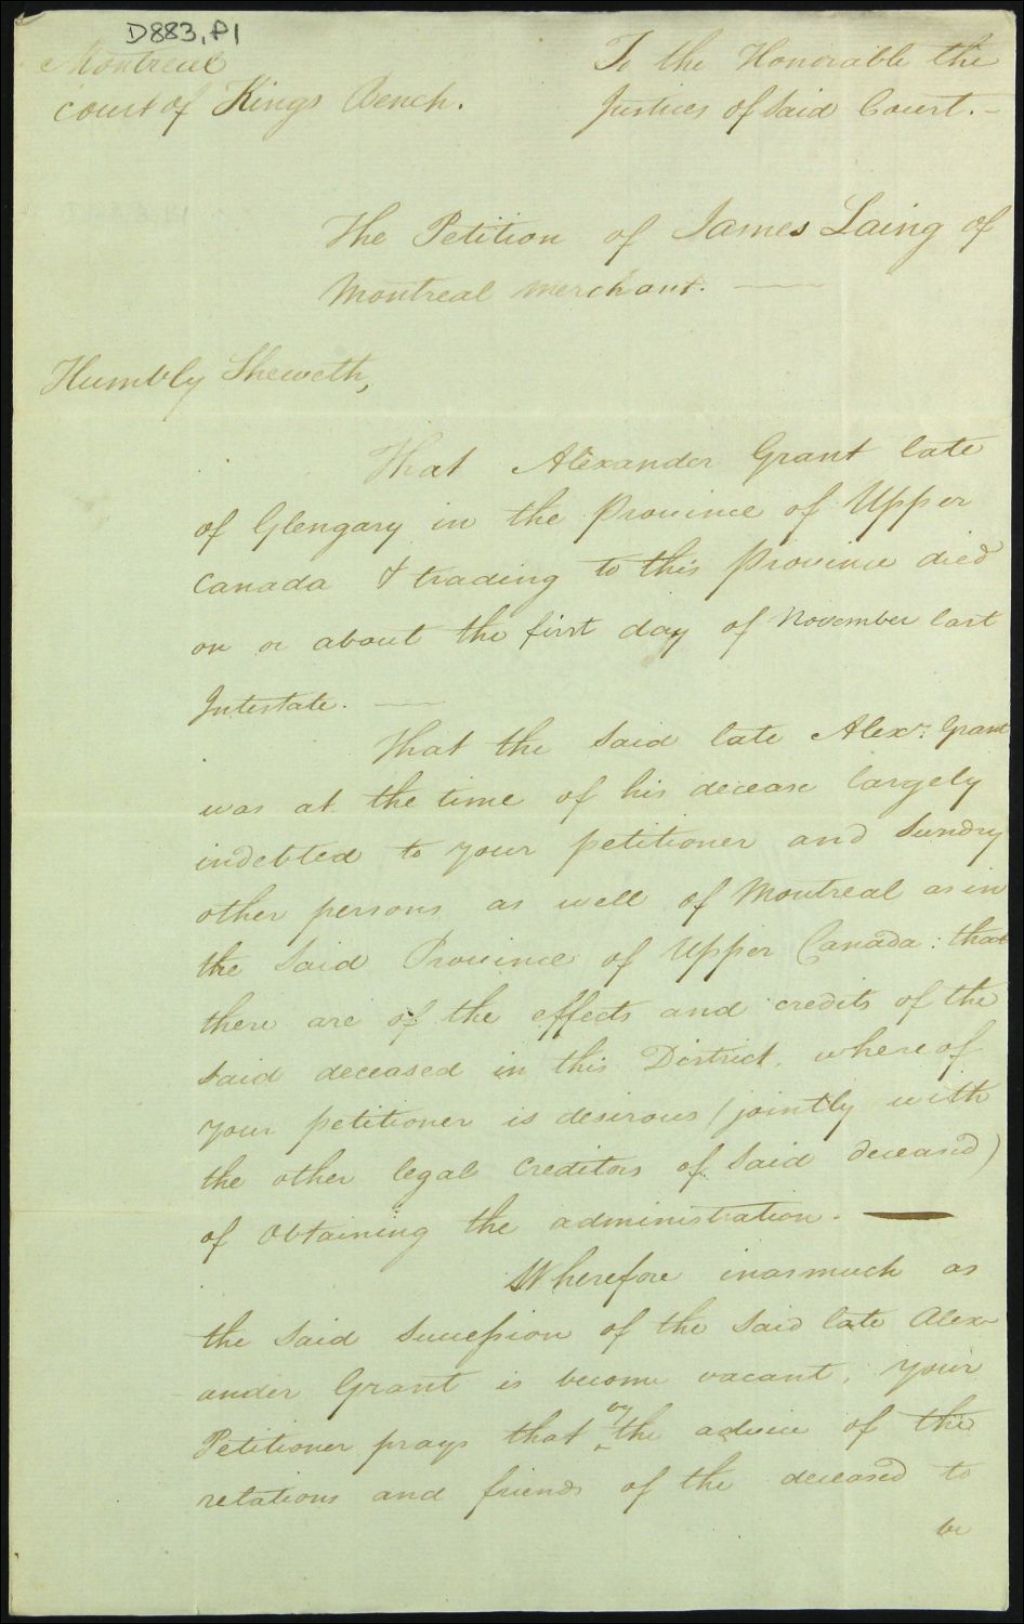 D883, P1
Montreal
Court of Kings Bench.
To the Honorable the
Justices of Said Court. -
The Petition of James Laing of
Montreal Merchant. —
Humbly Sheweth,
That Alexander Grant late
of Glengary in the Province of Upper
Canada & trading to this Province died
on or about the first day of November last
Intestate. —
That the Said late Alexr. Grant
was at the time of his decease largely
indebted to your petitioner and Sundry
other persons as well of Montreal as in
the Said Province of Upper Canada: that
there are of the effects and credits of the
Said deceased in this District whereof
your petitioner is desirous (jointly with
the other legal Creditors of Said deceased)
of Obtaining the administration. —
Wherefore inasmuch as
the Said Succession of the Said late Alex-
ander Grant is become vacant, your
Petitioner prays that by the advice of the
relations and friends of the deceased to
be